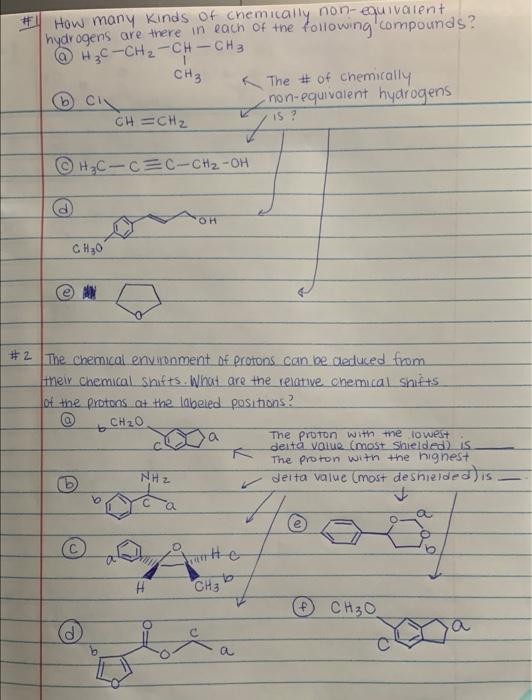 #1 How many kinds of chemically non-equivalent
hydrogens are there in each of the following compounds?
(a) H3C-CH2-CH-CH3
CH3
The # of chemically
non-equivalent hydrogens
is ?
(b) Cl
CH=CH2
(c) H3C-C≡C-CH2-OH
(d)
OH
CH3O
(e)
O
#2 The chemical environment of protons can be deduced from
their chemical shifts. What are the relative chemical shifts
of the protons at the labeled positions?
(a) b CH2O
c a
The proton with the lowest
delta value (most shielded) is ___
The proton with the highest
delta value (most deshielded) is ___
(b) NH2
b c a
(e) O a
O
b
(c) a O H c
H CH3 b
(f) CH3O
c a
(d) O
b O c a
O